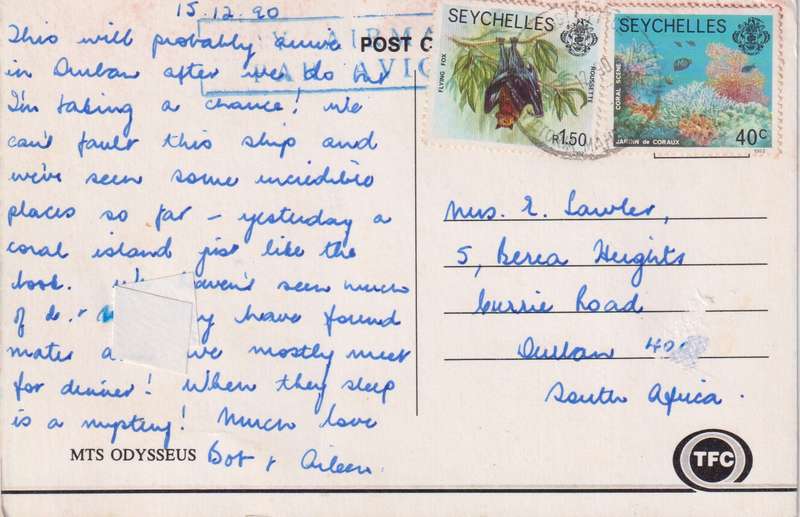 15.12.90
This will probably arrive
in Durban after we do but
I'm taking a chance! We
can't fault this ship and
we've seen some incredible
places so far – yesterday a
coral island jist like the
book. haven't seen much
of have found
mates a we mostly meet
for dinner! When they sleep
is a mystery! Much love
Dot & Aileen.
MTS ODYSSEUS
AIRMA
PAR AVIO
POST C
SEYCHELLES
FLYING FOX
ROUSSETTE
R1.50
SEYCHELLES
CORAL SCENE
JARDIN de CORAUX
40c
Mrs. E. Lawler,
5, Berea Heights
Currie Road
Durban 40
South Africa.
TFC